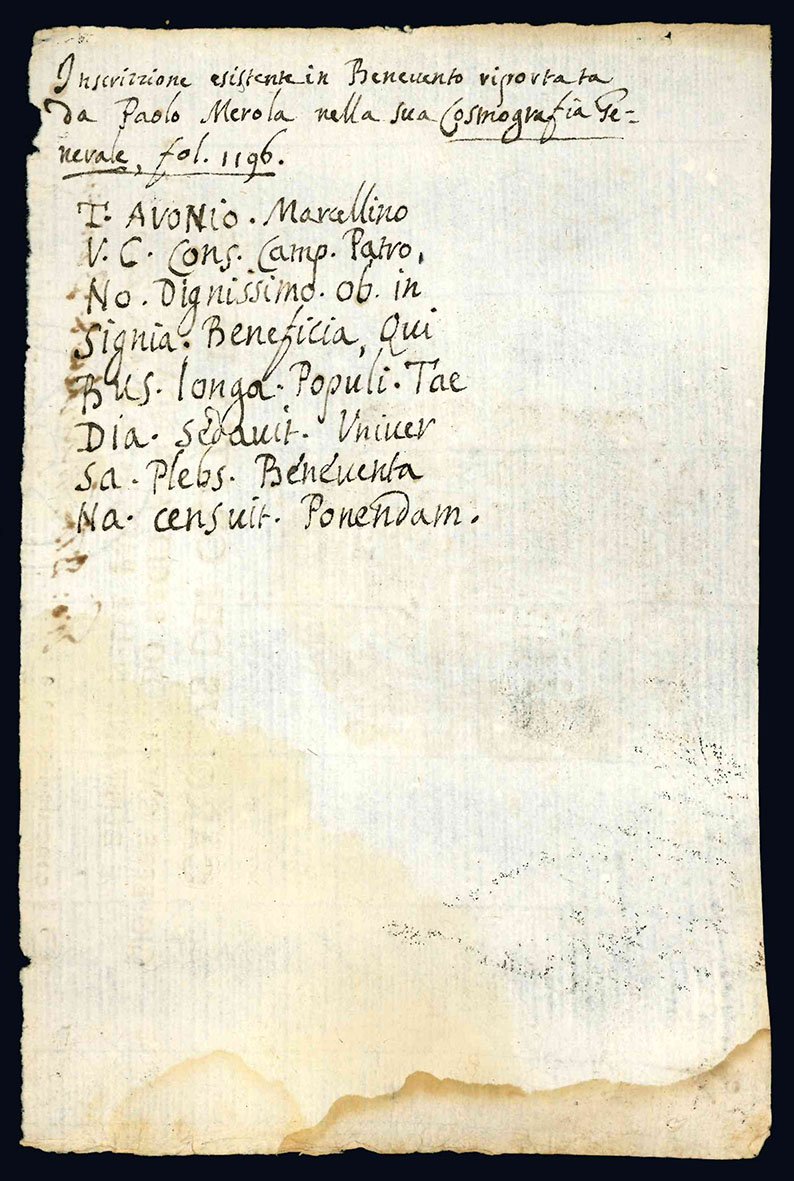 Inscrizzione esistente in Benevento riportata
da Paolo Merola nella sua Cosmografia Ge-
nerale, fol. 1196.
T. AVONIO. Marcellino
V. C. Cons. Camp. Patro,
No. Dignissimo. ob. in
Signia. Beneficia, Qui
BUS. longa. Populi. Tae
Dia. sedavit. Univer
Sa. Plebs. Beneventa
Na. censuit. Ponendam.